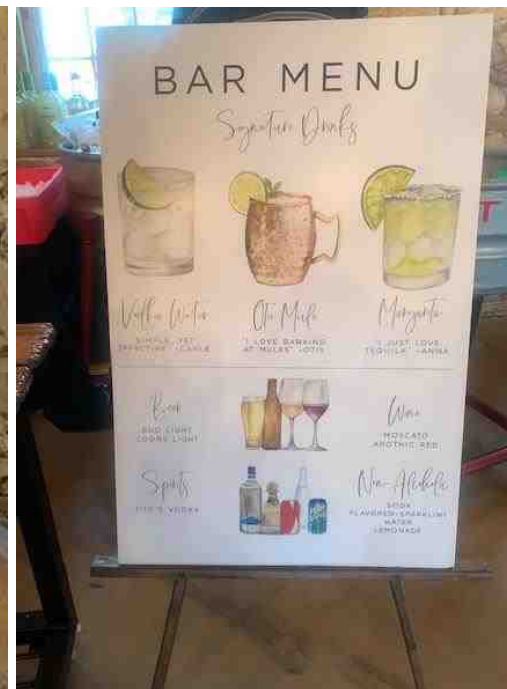 BAR MENU
Signature Drinks
Vodka Water
SIMPLE, YET
EFFECTIVE
Oti Mule
"I LOVE BARKING
AT MULES" -OTIS
Margarita
"I JUST LOVE
TEQUILA" -ANNA
Beer
BUD LIGHT
COORS LIGHT
Wine
MOSCATO
APOTHIC RED
Spirits
TITO'S VODKA
Non-Alcoholic
SODA
FLAVORED SPARKLING
WATER
LEMONADE